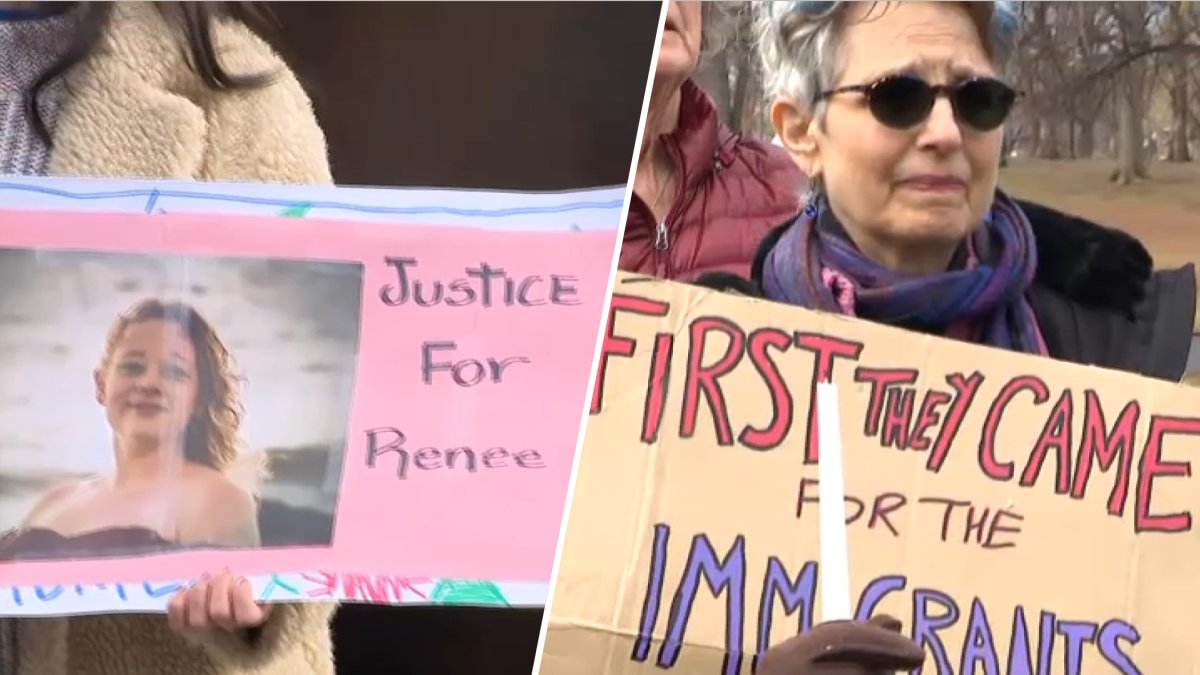 JUSTICE
FOR
Renee
FIRST THEY CAME
FOR THE
IMMIGRANTS